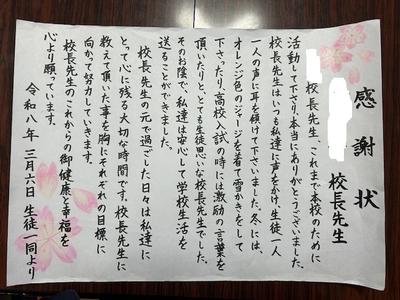 感謝状
校長先生
校長先生、これまで本校のために
活動して下さり本当にありがとうございました。
校長先生はいつも私達に声をかけ、生徒一人
一人の声に耳を傾けて下さいました。冬には、
オレンジ色のジャージを着て雪かきをして
下さったり、高校入試の時には激励の言葉を
頂いたりと、とても生徒思いな校長先生でした。
そのお陰で、私達は安心して学校生活を
送ることができました。
校長先生の元で過ごした日々は私達に
とって心に残る大切な時間です。校長先生に
教えて頂いた事を胸にそれぞれの目標に
向かって努力していきます。
校長先生のこれからの御健康と幸福を
心より願っています。
令和八年 三月六日 生徒一同より